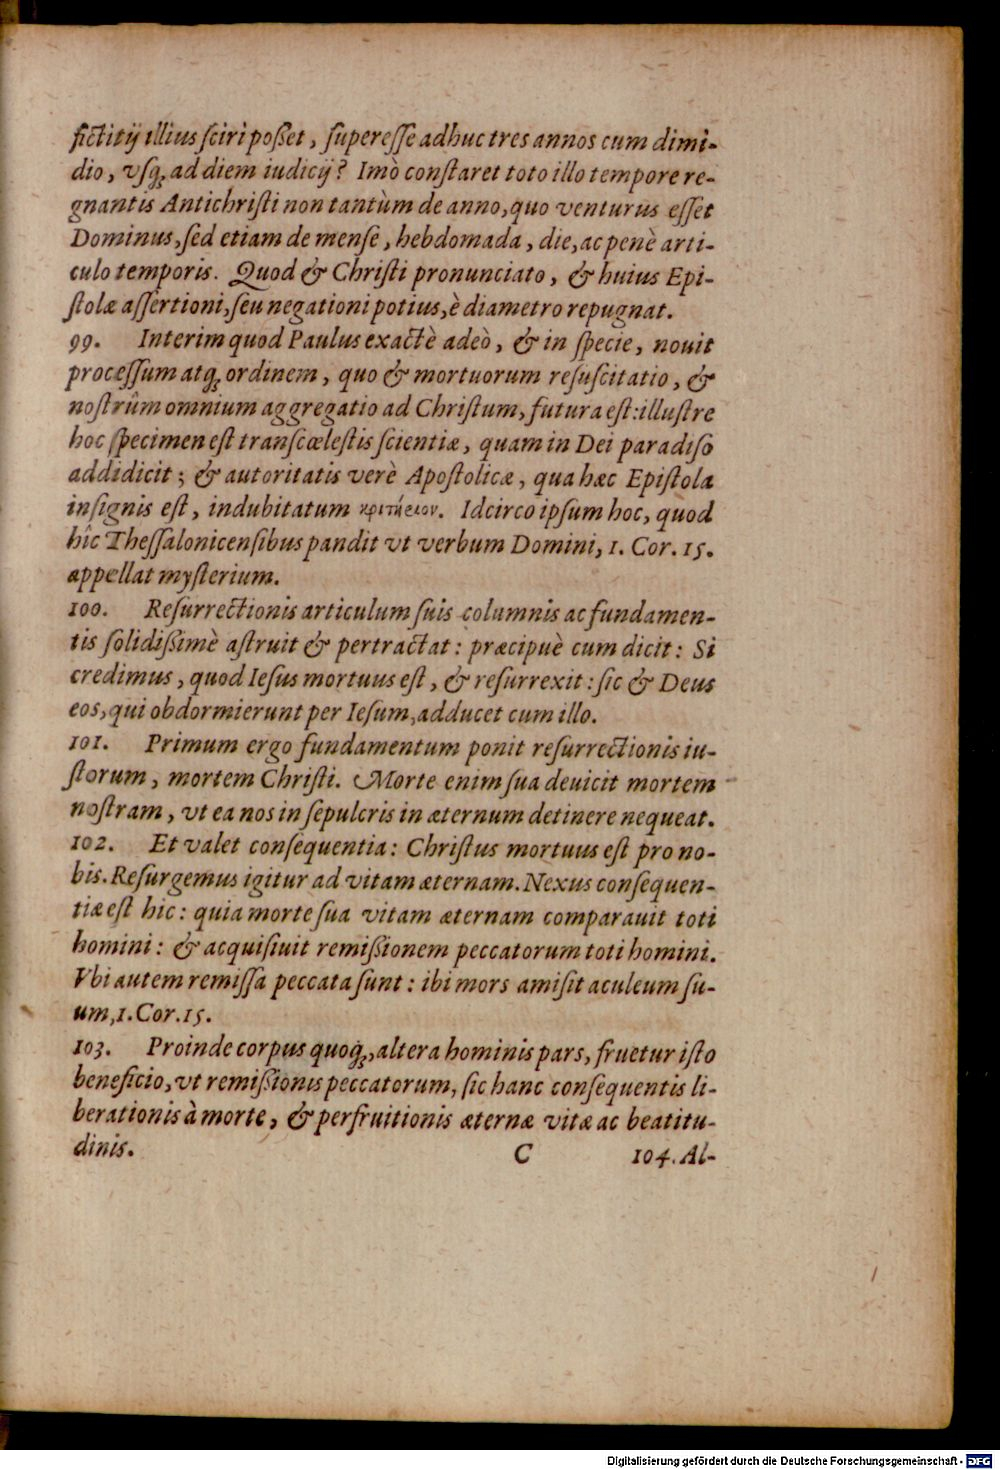 fictitij illius ſciri poßet, ſupereſſe adhuc tres annos cum dimi-
dio, vſq; ad diem iudicij? Imò conſtaret toto illo tempore re-
gnantis Antichriſti non tantùm de anno, quo venturus eſſet
Dominus, ſed etiam de menſe, hebdomada, die, ac penè arti-
culo temporis. Quod & Chriſti pronunciato, & huius Epi-
ſtolæ aſſertioni, ſeu negationi potius, è diametro repugnat.
99. Interim quod Paulus exactè adeò, & in ſpecie, nouit
proceſſum atq; ordinem, quo & mortuorum reſuſcitatio, &
noſtrûm omnium aggregatio ad Chriſtum, futura eſt: illuſtre
hoc ſpecimen eſt tranſcœleſtis ſcientiæ, quam in Dei paradiſo
addidicit; & autoritatis verè Apoſtolicæ, qua hæc Epiſtola
inſignis eſt, indubitatum κριτήριον. Idcirco ipſum hoc, quod
hîc Theſſalonicenſibus pandit vt verbum Domini, 1. Cor. 15.
appellat myſterium.
100. Reſurrectionis articulum ſuis columnis ac fundamen-
tis ſolidißimè aſtruit & pertractat: præcipuè cum dicit: Si
credimus, quod Ieſus mortuus eſt, & reſurrexit: ſic & Deus
eos, qui obdormierunt per Ieſum, adducet cum illo.
101. Primum ergo fundamentum ponit reſurrectionis iu-
ſtorum, mortem Chriſti. Morte enim ſua deuicit mortem
noſtram, vt ea nos in ſepulcris in æternum detinere nequeat.
102. Et valet conſequentia: Chriſtus mortuus eſt pro no-
bis. Reſurgemus igitur ad vitam æternam. Nexus conſequen-
tiæ eſt hic: quia morte ſua vitam æternam comparauit toti
homini: & acquiſiuit remißionem peccatorum toti homini.
Vbi autem remiſſa peccata ſunt: ibi mors amiſit aculeum ſu-
um, 1. Cor. 15.
103. Proinde corpus quoq;, altera hominis pars, fruetur iſto
beneficio, vt remißionis peccatorum, ſic hanc conſequentis li-
berationis à morte, & perfruitionis æternæ vitæ ac beatitu-
dinis. C 104. Al-
Digitalisierung gefördert durch die Deutsche Forschungsgemeinschaft - DFG